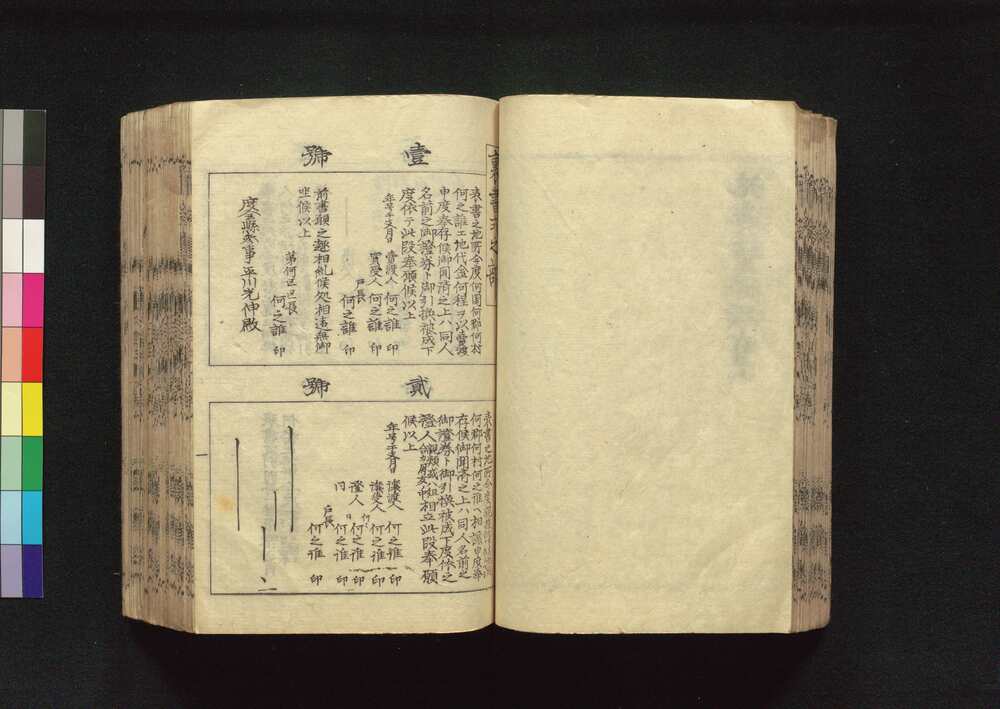 裏書書
壹號
表書之地所今度何國何郡何村
何之誰ェ地代金何程ヲ以賣渡
申度奉存候御聞済之上ハ同人
名前之御證券ト御引換被成下
度依テ此段奉願候以上
年号干支月日
賣渡人 何之誰 印
買受人 何之誰 印
戸長 何之誰 印
前書願之趣相糺候処相違無御
坐候以上
第何区区長
何之誰 印
度会縣参事平川光伸殿
貳號
表書之地所今度
何郡何村何之誰ヘ相譲申度奉
存候御聞済之上ハ同人名前之
御證券ト御引換被成下度依之
證人親類或ハ組相立此段奉願
候以上
年号干支月日
譲渡人 何之誰 印
譲受人 何之誰 印
證人 何之誰 印
同 何之誰 印
戸長 何之誰 印